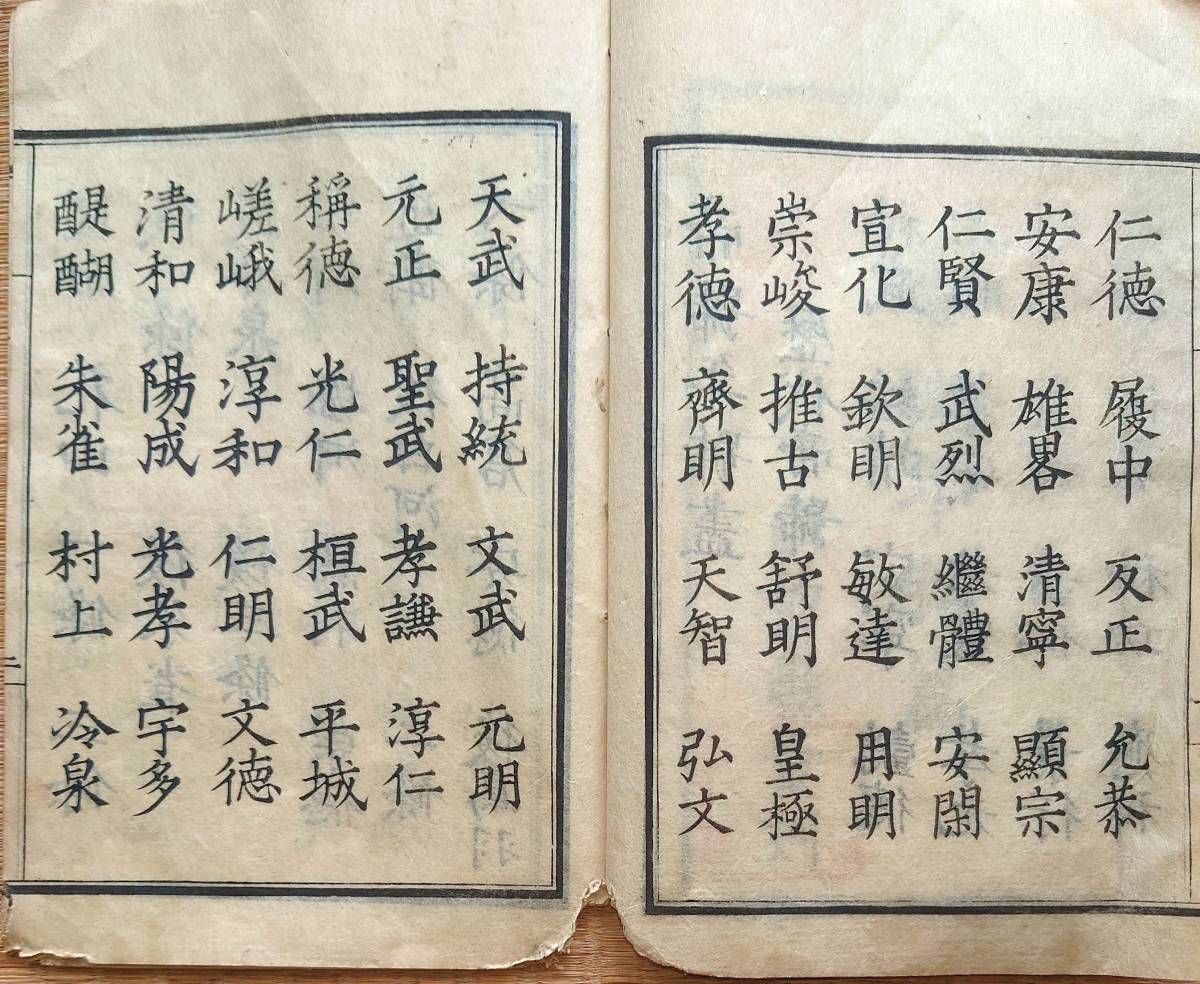 仁德 履中 反正 允恭
安康 雄畧 清寧 顯宗
仁賢 武烈 繼體 安閑
宣化 欽明 敏達 用明
崇峻 推古 舒明 皇極
孝德 齊明 天智 弘文
天武 持統 文武 元明
元正 聖武 孝謙 淳仁
稱德 光仁 桓武 平城
嵯峨 淳和 仁明 文德
清和 陽成 光孝 宇多
醍醐 朱雀 村上 冷泉
二